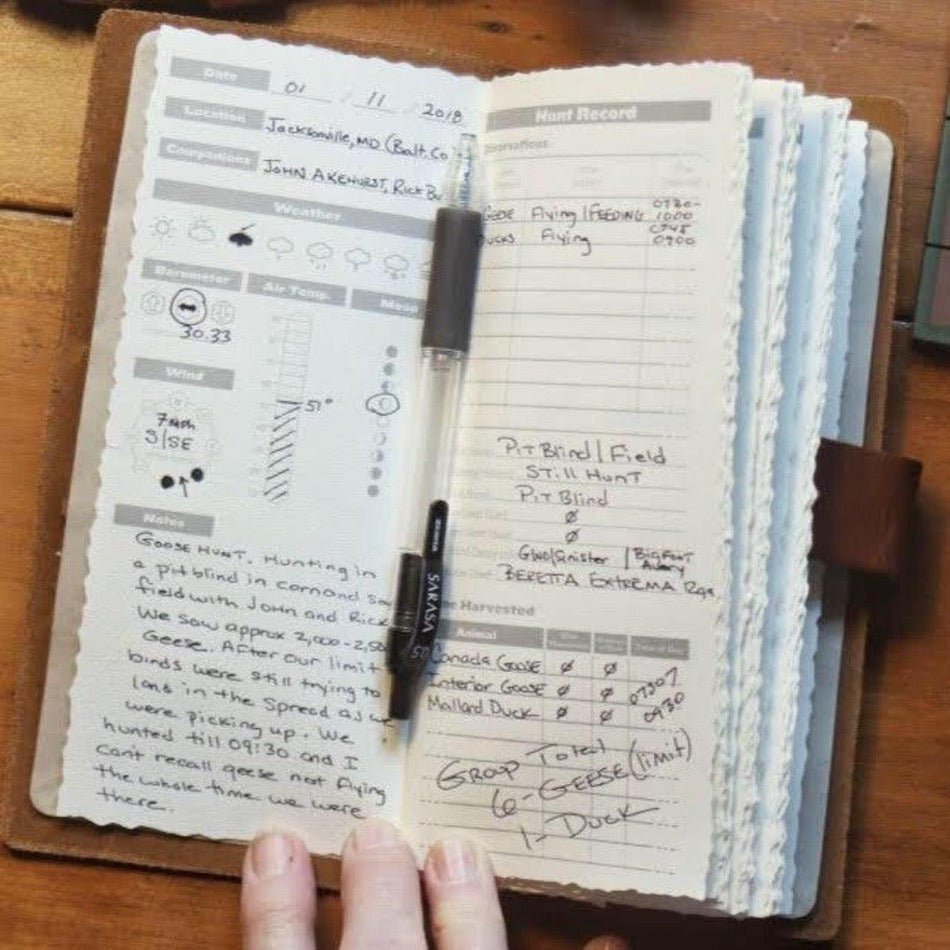 Date 01 / 11 / 2018
Location Jacksonville, MD (Balt. Co
Companions JOHN AKEHURST, RICK
Weather
Barometer
Air Temp.
Moon
30.33
51°
Wind
7mph
S/SE
Notes
GOOSE HUNT. HUNTING IN
a pit blind in corn and
field with JOHN and RICK
We saw approx 2,000-2,50
Geese. After our limit
birds were still trying to
land in the spread as we
were picking up. We
hunted till 09:30 and I
can't recall geese not flying
the whole time we were
there.
SARASA
Hunt Record
GEESE Flying/FEEDING 0730-
1000
Flying 0745
0900
PIT Blind / Field
STILL HUNT
PIT Blind
Ø
Ø
BIGFOOT
BERETTA EXTREMA
Harvested
Animal
Canada GOOSE Ø Ø
GOOSE Ø Ø
Mallard Duck Ø Ø 0930
Group Total
6-GEESE (limit)
1-DUCK